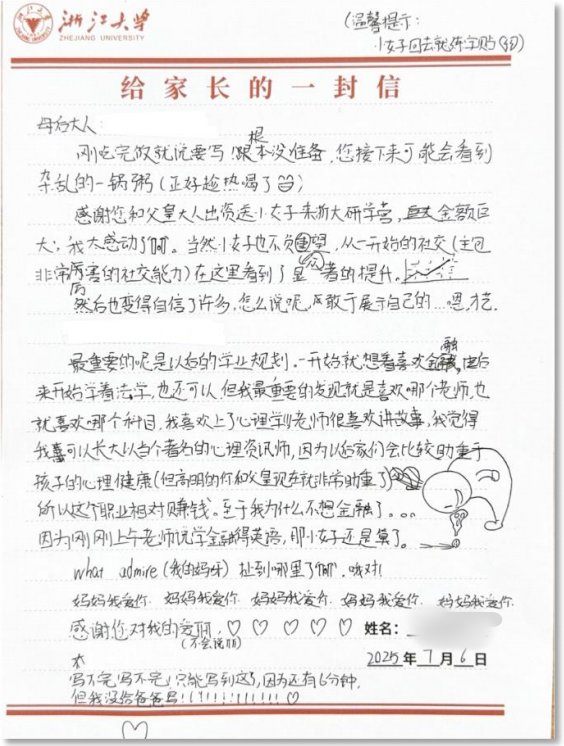 浙江大学
ZHEJIANG UNIVERSITY
(温馨提示:
小女子回去就练字贴
给家长的一封信
母后大人:
刚吃完饭就说要写!根本没准备,您接下来可能会看到
杂乱的一锅粥(正好趁热喝了
感谢您和父皇大人出资送小女子来浙大研学营,金额巨
大,我太感动了。当然小女子也不负望,从一开始的社交(主包
非常厉害的社交能力)在这里看到了显著的提升。
然后也变得自信了许多,怎么说呢,敢于展示自己的…嗯,才艺.
最重要的呢是以后的学业规划.一开始就想着喜欢金融,由后
来开始学着法学,也还可以,但我最重要的发现就是喜欢哪个老师,也
就喜欢哪个科目,我喜欢上了心理学!!老师很喜欢讲故事,我觉得
我可以长大以当个著名的心理资讯师,因为以后家们会比较助重于
孩子的心理健康(但高明的你和父皇现在就非常助重了)
所以这个职业相对赚钱。至于我为什么不想金融了。。。
因为刚刚上午老师说学金融得英语,那小女子还是算了。
what admire (我的妈呀) 扯到哪里了,哦对!
妈妈我爱你 妈妈我爱你 妈妈我爱你 妈妈我爱你 妈妈我爱你
感谢您对我的爱啊,♡ ♡ ♡ ♡ ♡ 姓名:
(不会说!!!)
2025年7月6日
太
写不完,写不完!只能写到这了,因为还有6分钟,
但我没给爸爸写!!!!!!!!!!!!!♡